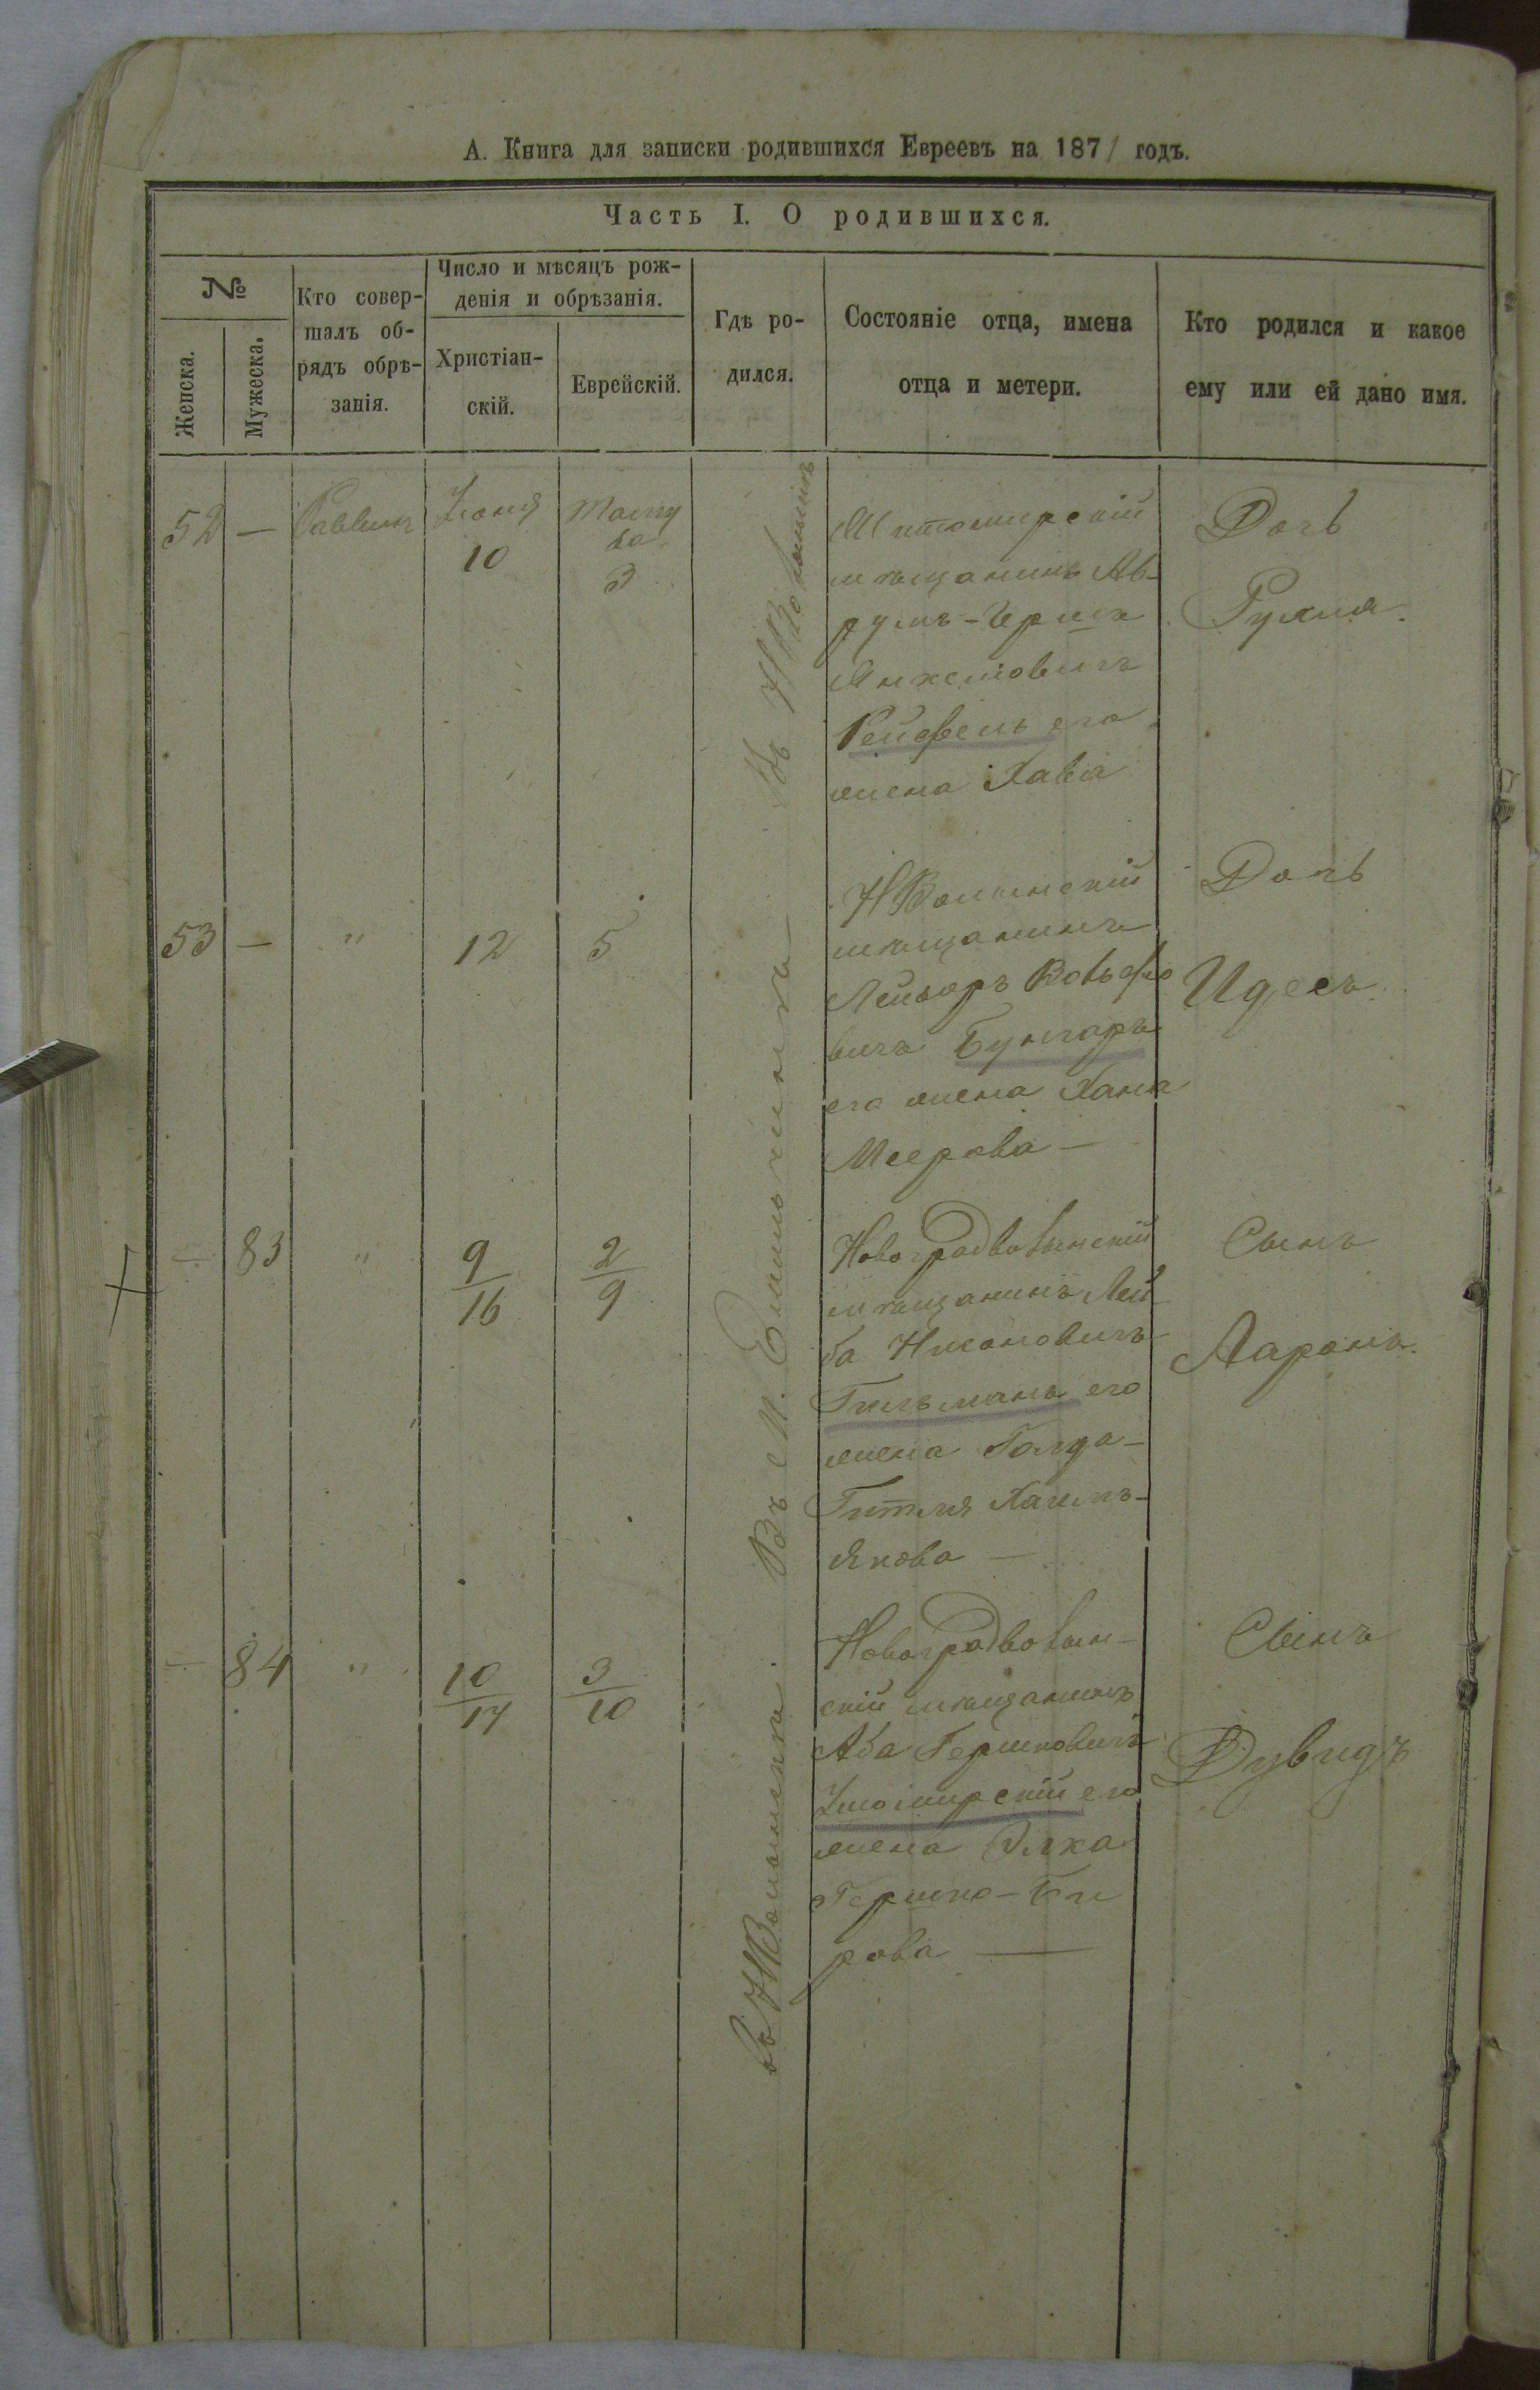 А. Книга для записки родившихся Евреевъ на 1871 годъ.
Часть I. О родившихся.
№
Женска.
Мужеска.
Кто совер-
шалъ об-
рядъ обрѣ-
занія.
Число и мѣсяцъ рож-
денія и обрѣзанія.
Христіан-
скій.
Еврейскій.
Гдѣ ро-
дился.
Состояніе отца, имена
отца и метери.
Кто родился и какое
ему или ей дано имя.
52 — Раввинъ Іюня
10
Таму
за
3
Житомирскій
мѣщанинъ Ав-
румъ-Гершъ
Янкелювичъ
его
жена Хавіа
Дочь
53 — " 12 5
НВолынскій
мѣщанинъ
Лейзоръ Вольфо
вичъ Бунгаръ
его жена Хана
Меерова —
Дочь
Идесъ
— 83 " 9/16 2/9
Новоградволынскій
мѣщанинъ Лей
ба Нисоновичъ
его
жена Голда-
Гитля Хаимъ-
Якова —
Сынъ
Ааронъ.
— 84 " 10/17 3/10
Новоградволын-
скій мѣщанинъ
Аба Гершковичъ
его
жена Элка
Гершко-Бе
рова —
Сынъ
Дувидъ
въ НВолынскѣ. Въ м. Емильчинѣ — Въ НВолынскѣ